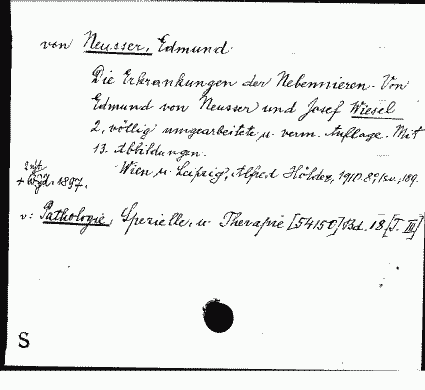 von Neusser, Edmund.
Die Erkrankungen der Nebennieren. Von
Edmund von Neusser und Josef Wiesel
2, völlig umgearbeitete u. verm. Auflage. Mit
13. Abbildungen.
Wien u. Leipzig, Alfred Hölder, 1910. 8°,
+ 1897.
v: Pathologie, Spezielle, u. Therapie [54150] Bd. 18 [T. III]
S